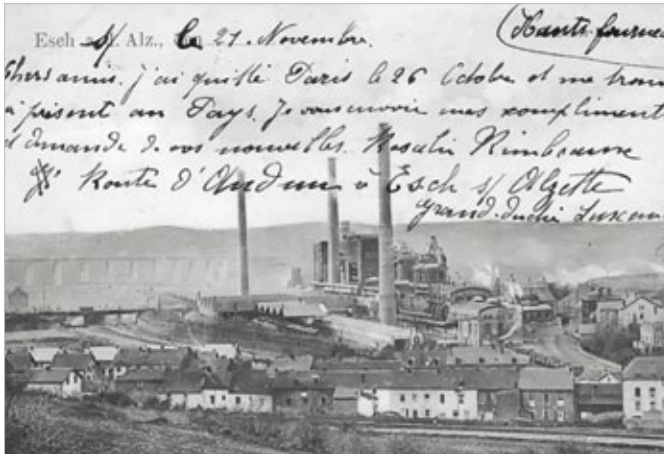 Esch a. d. Alz., le 21. Novembre.
(Hauts fourne
Chers amis. j'ai quitté Paris le 26 Octobre et me trou
à présent au Pays. Je vous envoie mes compliment
demande de vos nouvelles. Rosalie
Route d'Audun à Esch s/ Alzette
grand. duché Luxem